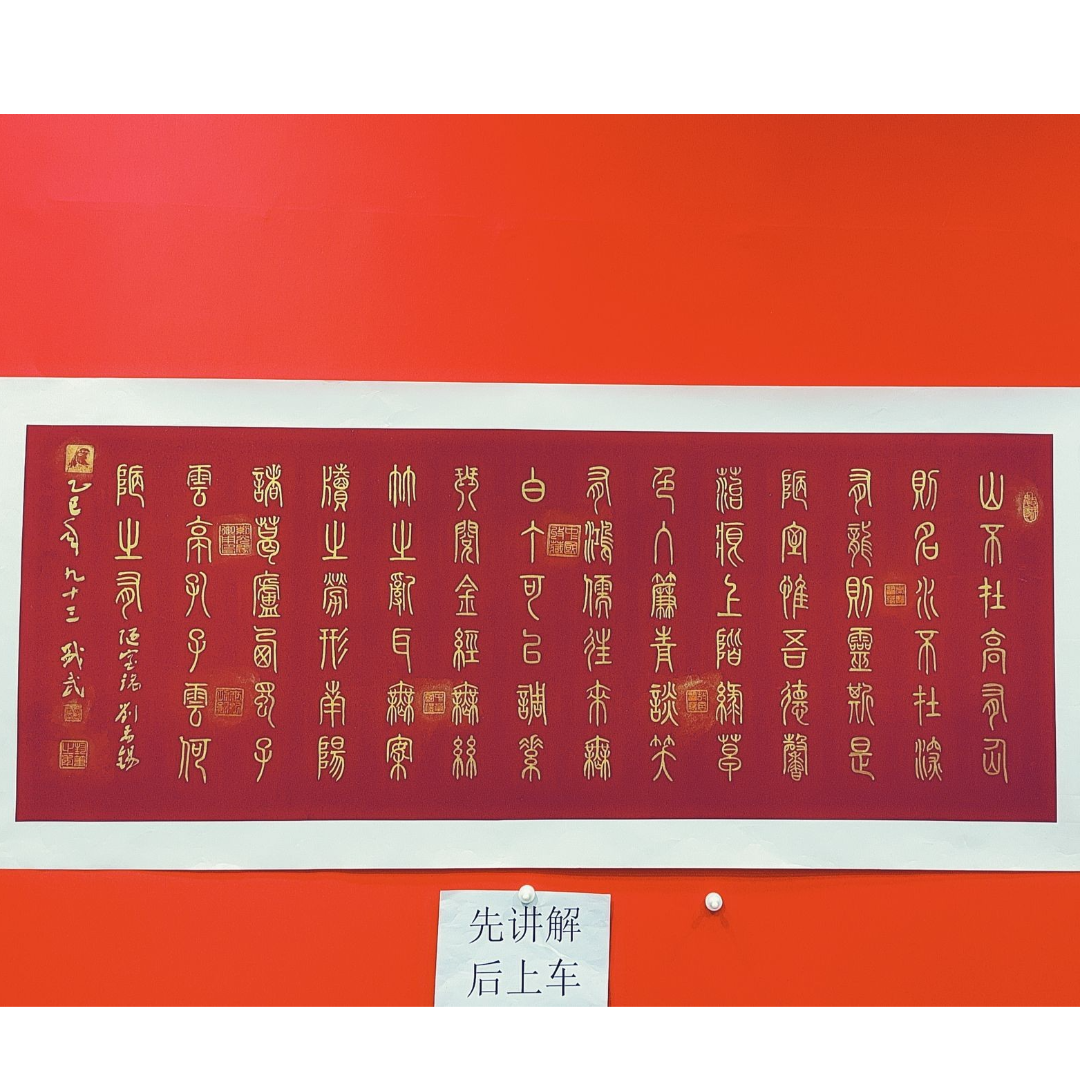 山不在高有仙
則名水不在深
有龍則靈斯是
陋室惟吾德馨
苔痕上階綠草
色入簾青談笑
有鴻儒往來無
白丁可以調素
琴閱金經無絲
竹之亂耳無案
牘之勞形南陽
諸葛廬西蜀子
雲亭孔子雲何
陋之有 陋室銘 劉禹錫
乙巳年 九十三 武
先讲解
后上车